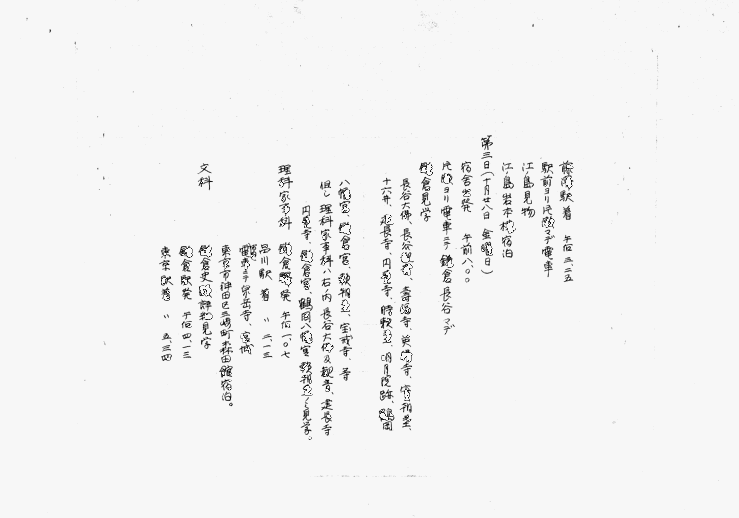 藤沢駅着 午后三、二五
駅前ヨリ片瀬マデ電車
江ノ島見物
江ノ島岩本楼宿泊
第三日(十月廿八日 金曜日)
宿舎出発 午前八、〇〇
片瀬ヨリ電車ニテ鎌倉長谷マデ
鎌倉見学
長谷大佛、長谷観音、壽福寺、英勝寺、
十六井、建長寺、円覚寺、明月院跡、鶴岡
八幡宮、鎌倉宮、頼朝墓、宝戒寺、等
但し理科家事科ハ右ノ内長谷大佛及観音、建長寺
円覚寺、鎌倉宮、鶴岡八幡宮頼朝墓ノミ見学。
理科家事科 鎌倉駅発 午后一、〇七
品川駅着 〃 二、一三
電車ニテ泉岳寺、宮城
東京市神田区三崎町森田館宿泊。
文科 鎌倉史蹟詳細見学
鎌倉駅発 午后四、一三
東京駅着 〃 五、三四